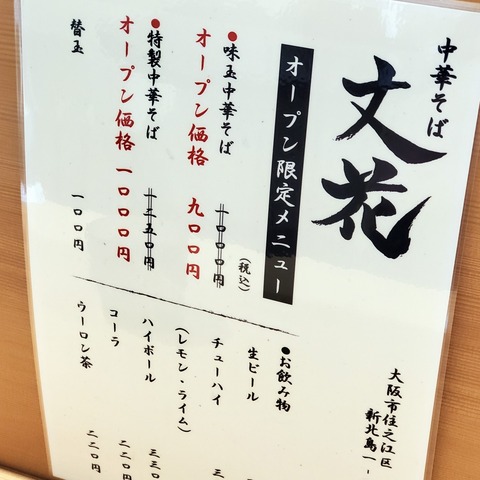 中華そば
文花
大阪市住之江区
新北島一-
オープン限定メニュー
●味玉中華そば
一〇〇〇円
(税込)
オープン価格 九〇〇円
●特製中華そば
一二五〇円
オープン価格 一〇〇〇円
替玉 一〇〇円
●お飲み物
生ビール
チューハイ 三
(レモン・ライム)
ハイボール 三三〇
コーラ 二二〇円
ウーロン茶 二二〇円